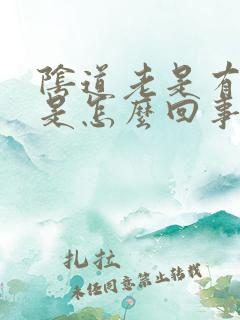 陰道老是有
是怎麼回事
扎拉
未经同意禁止转载